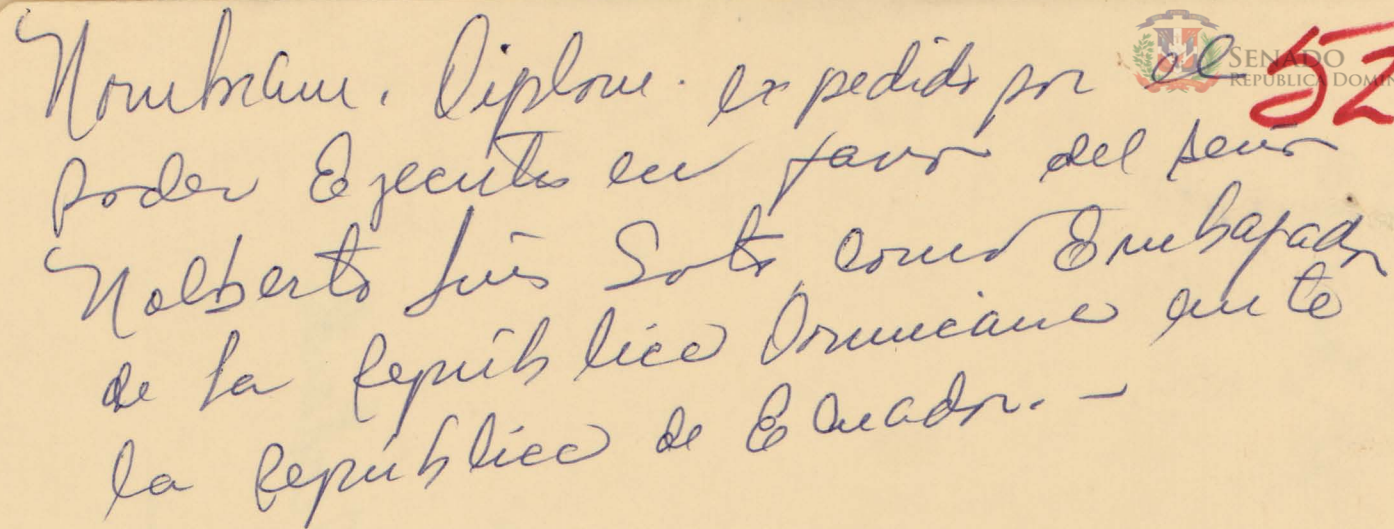 Nombram. Diplom. expedido por el 52
SENADO
REPÚBLICA DOMIN
poder Ejecutivo en favor del señor
Nalberto Luis Soto, como Embajador
de la República Dominicana ante
la República de Ecuador. -